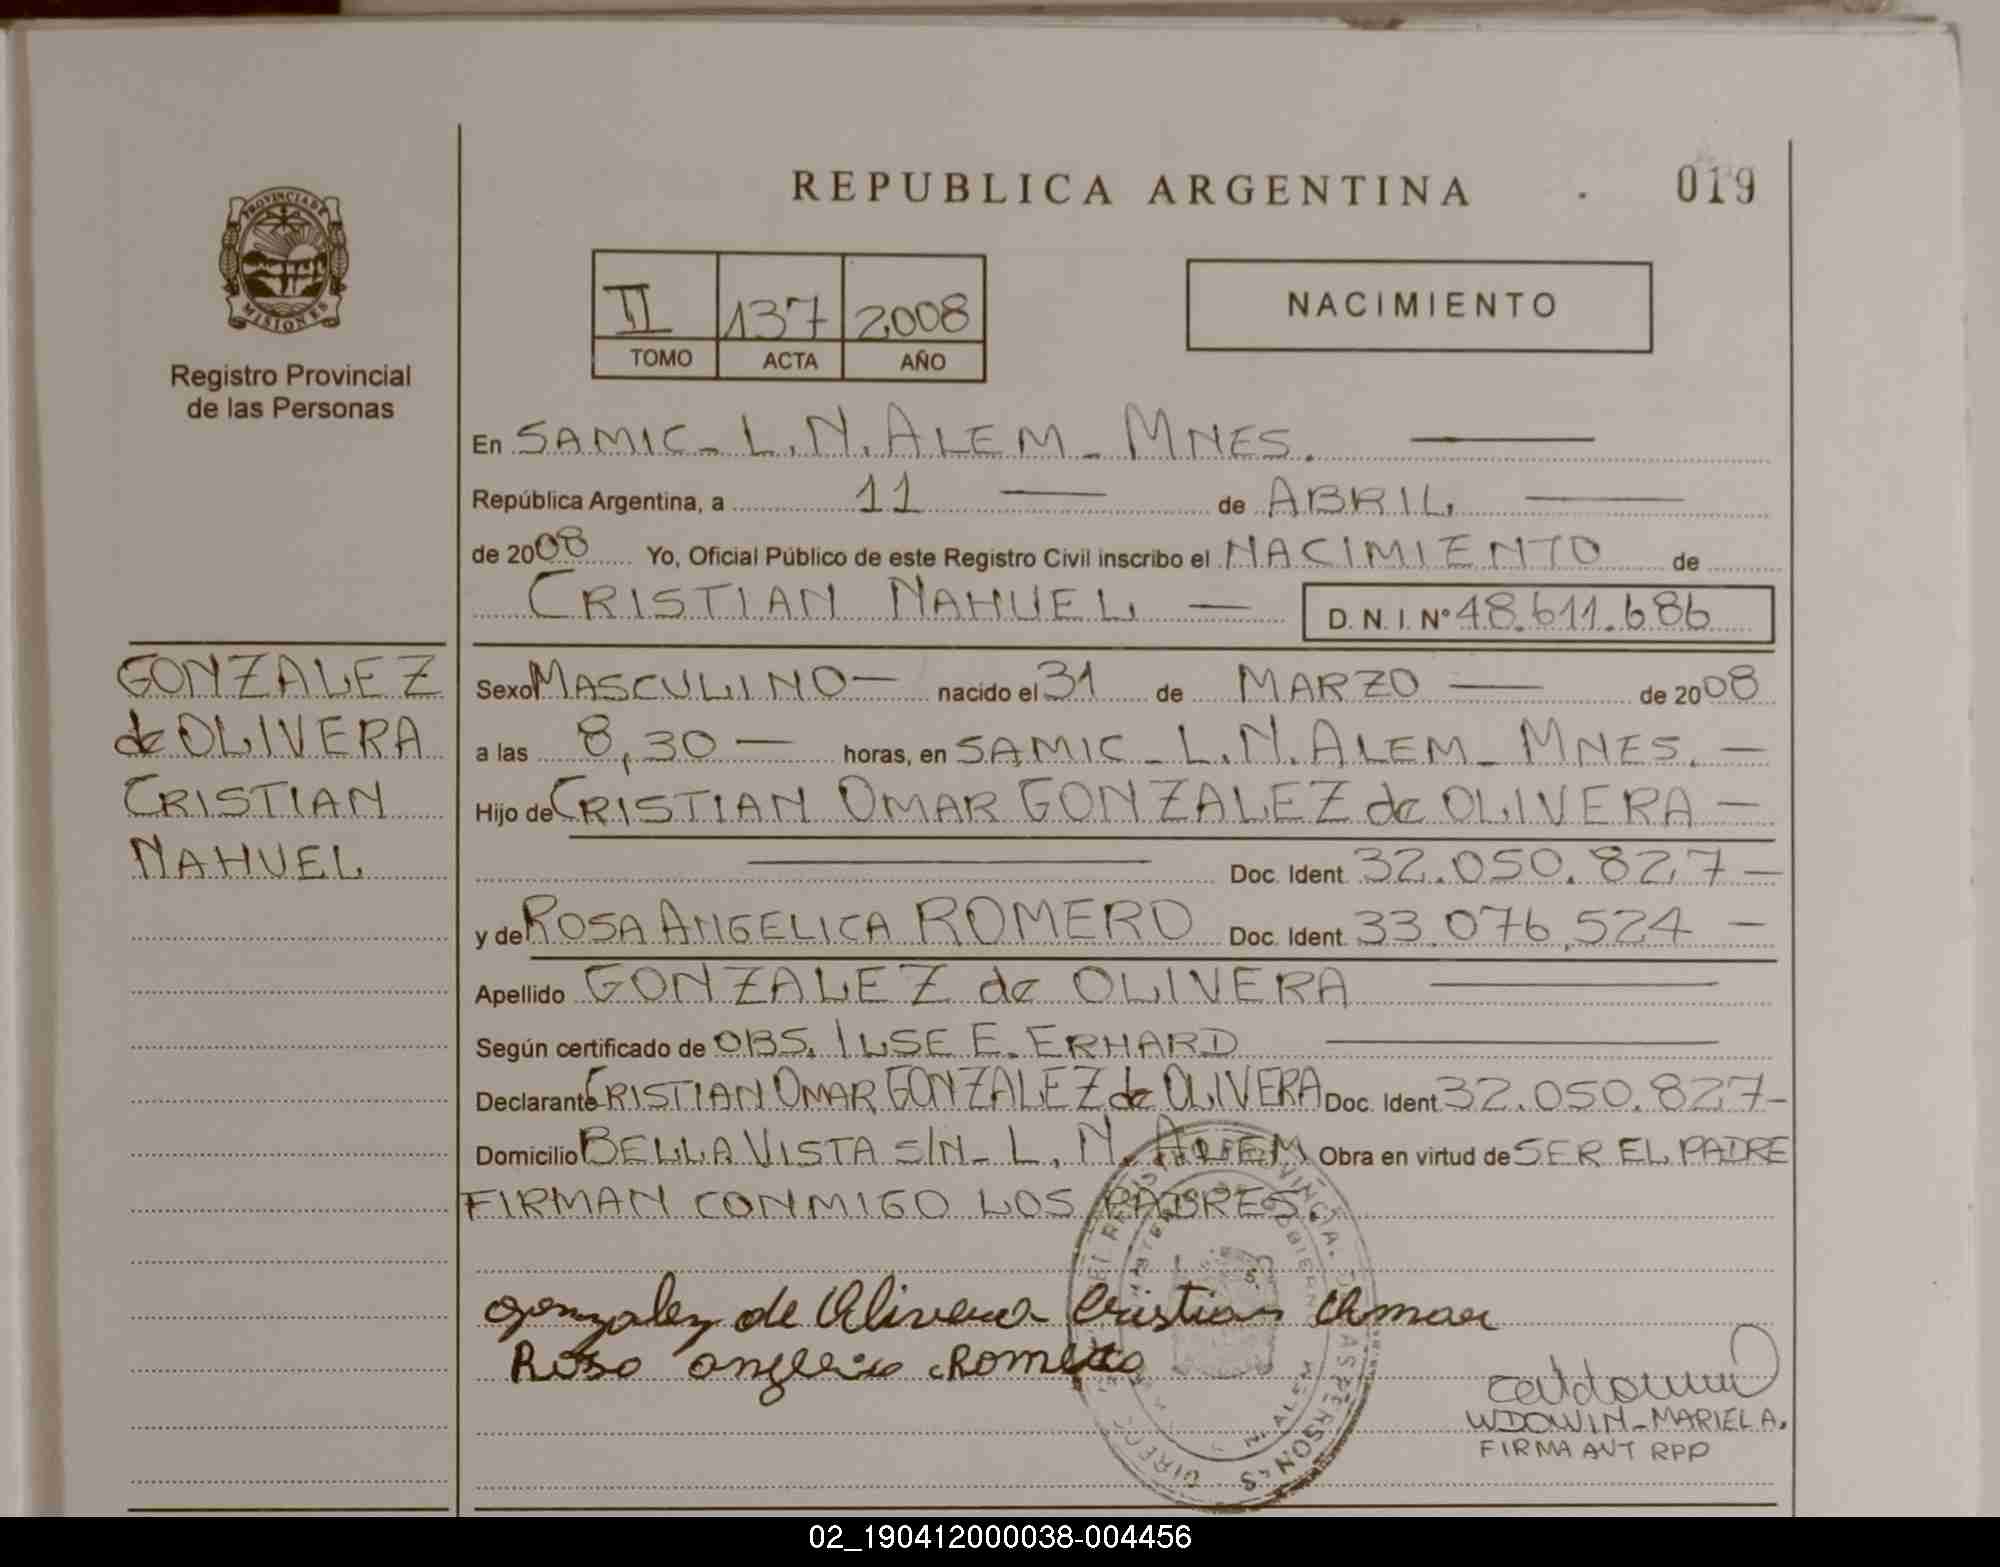 REPUBLICA ARGENTINA
019
PROVINCIA DE
MISIONES
Registro Provincial
de las Personas
II 137 2008
TOMO ACTA AÑO
NACIMIENTO
En SAMIC - L.N. ALEM - MNES.
República Argentina, a 11 de ABRIL
de 2008 Yo, Oficial Público de este Registro Civil inscribo el NACIMIENTO de
CRISTIAN NAHUEL — D. N. I. Nº 48.611.686
GONZALEZ
de OLIVERA
CRISTIAN
NAHUEL
Sexo MASCULINO — nacido el 31 de MARZO — de 2008
a las 8,30 — horas, en SAMIC - L.N. ALEM - MNES. —
Hijo de CRISTIAN OMAR GONZALEZ de OLIVERA —
Doc. Ident. 32.050.827 —
y de ROSA ANGELICA ROMERO Doc. Ident. 33.076.524 —
Apellido GONZALEZ de OLIVERA
Según certificado de OBS. ILSE E. ERHARD
Declarante CRISTIAN OMAR GONZALEZ de OLIVERA Doc. Ident. 32.050.827-
Domicilio BELLA VISTA S/N - L. N. ALEM Obra en virtud de SER EL PADRE
FIRMAN CONMIGO LOS PADRES.
gonzalez de Olivera Cristian Omar
Rosa angelica Romero
WDOWIN - MARIEL A.
FIRMA AUT RPP
02_190412000038-004456